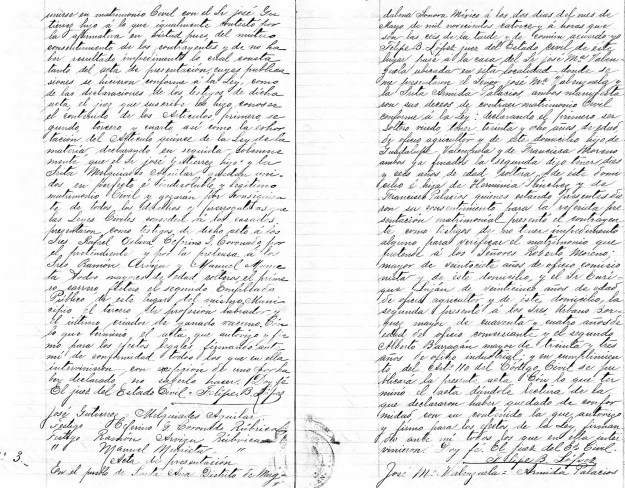 unirse en matrimonio Civil con el Sr José Gu-
tierrez hijo á lo que igualmente contestó por
la afirmativa en virtud pues, del mútuo
consentimiento de los contrayentes y de no ha-
ber resultado impedimento lo cual consta
tanto del acta de presentación, cuyas publica-
ciones se hicieron conforme á la Ley, como
de las declaraciones de los testigos de dicha
acta el juez que suscribe les hizo, conocer
el contenido de los Artículos primero, se-
gundo, tercero y cuarto así como la
tación del Artículo quince de la Ley de la
materia, declarando en seguida solemne-
mente que el Sr José Gutierrez hijo y la
Srita Melquiades Aguilar quedan uni-
dos en perfecto é indisoluble y legítimo
matrimonio Civil y gozan por consiguien-
te de todos los derechos y prerrogativas que
las Leyes Civiles conceden á los casados,
presentaron como testigos de dicho acto á los
Sres Rafael y Ceferino G. Coronado por
el pretendiente y por la pretensa á los
Sres Ramón Arvizu y Manuel
todos mayores de edad, solteros el prime-
ro el segundo Empleado
Público de este lugar del mismo Muni-
cipio el tercero de profesion labrador y
el último criador de ganado vacuno, Con
lo que terminó el acta, que autorizo y fir-
mo para los efectos legales firmando ante
mi de conformidad todos los que en ella
intervinieron, con excepción de uno por ha-
ber declarado no saberlo hacer. Doy fé
El juez del Estado Civil. Felipe B. López
José Gutierrez, Melquiades Aguilar,
Testigo Ceferino G. Coronado Rúbrica
Testigo Ramón Arvizu Rúbrica
" Manuel "
3. Acta de presentación
En el pueblo de Santa Ana Distrito de Mag-
dalena Sonora México á los dos días del mes de
Mayo de mil novecientos catorce y á horas que
son las seis de la tarde y de comun acuerdo yo
Felipe B. López juez del Estado Civil de este
lugar pasé á la casa del Sr José Ma Valen-
zuela ubicada en esta localidad donde se
me presentaron el Señor José Ma Valenzuela y
la Srita Armida Palacios, ambos manifiesta
son sus deseos de contraer matrimonio Civil
conforme á la Ley: declarando el primero ser
soltero tener treinta y ocho años de edad
de oficio agricultor y de este domicilio hijo de
Guadalupe Valenzuela y de Francisca Moreno
ambos ya finados la segunda dijo tener diez
y seis años de edad, soltera, de este domi-
cilio é hija de Herminia Sánchez y de
Francisco Palacios quienes estando presentes die-
ron su consentimiento para la referida pre-
sentación matrimonial presentó el contrayen-
te como testigos de no tener impedimento
alguno para verificar el matrimonio que
pretende á los Señores Roberto Moreno
mayor de veintisiete años de oficio comisio-
nista y de este domicilio, y el Sr Enri-
que Luján de veinticinco años de edad
de oficio agricultor y de este domicilio, la
segunda presentó á los Sres Urbano
mayor de cuarenta y cuatro años de
edad de oficio comerciante y el segundo
Alberto Barragán mayor de treinta y tres
años de oficio industrial y en cumplimien-
to del Art. 110 del Código Civil se pu-
blicará la presente acta. Con lo que ter-
minó el acta dándole lectura de la
que declararon haber quedado de confor-
midad, con su contenido la que, autorizo
y firmo para los efectos, de la Ley, firman-
do ante mi todos los que en ella inter-
vinieron. Doy fé. El juez del Es Civil.
Felipe B. López
José Ma Valenzuela = Armida Palacios